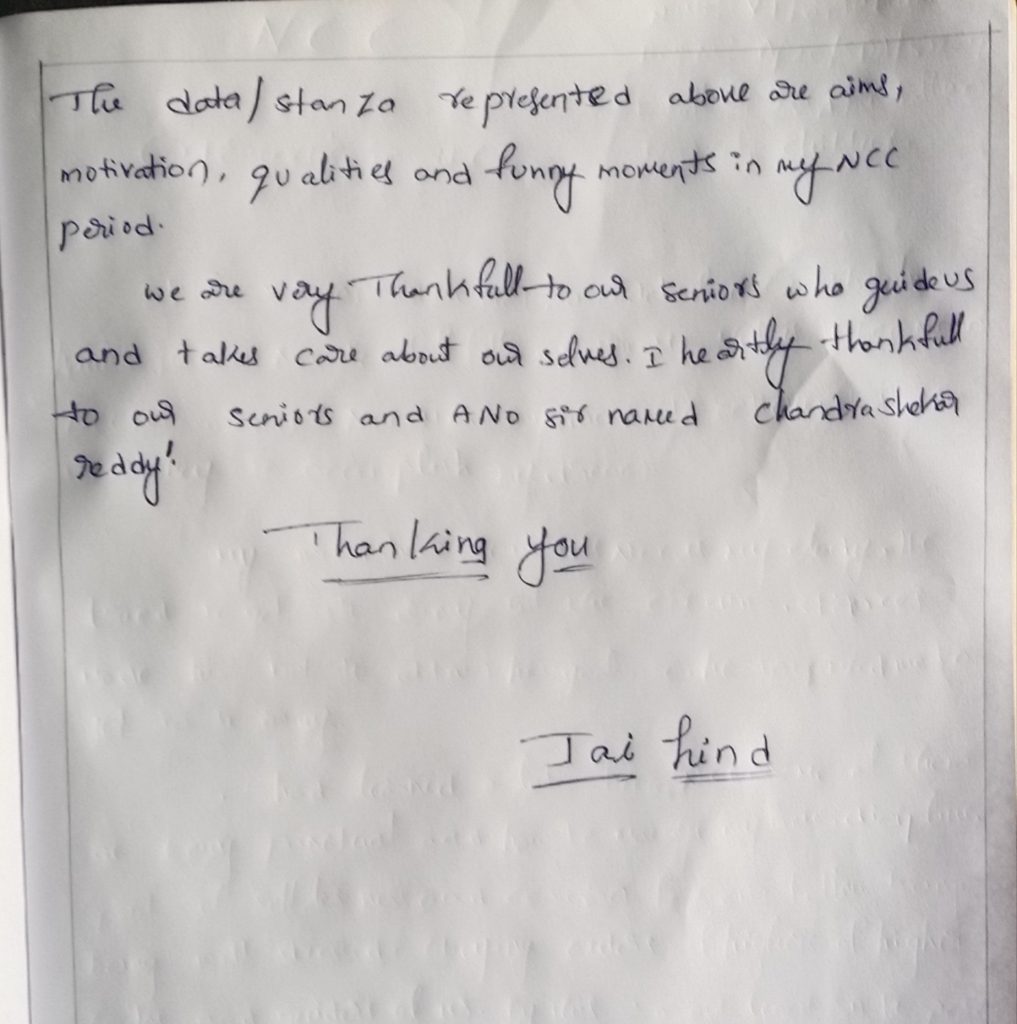 The data/stanza represented above are aims,
motivation, qualities and funny moments in my NCC
period.
we are very Thankfull to our seniors who guide us
and takes care about our selves. I heartly thankfull
to our seniors and ANO sir named chandrashekar
reddy!
Thanking you
Jai hind